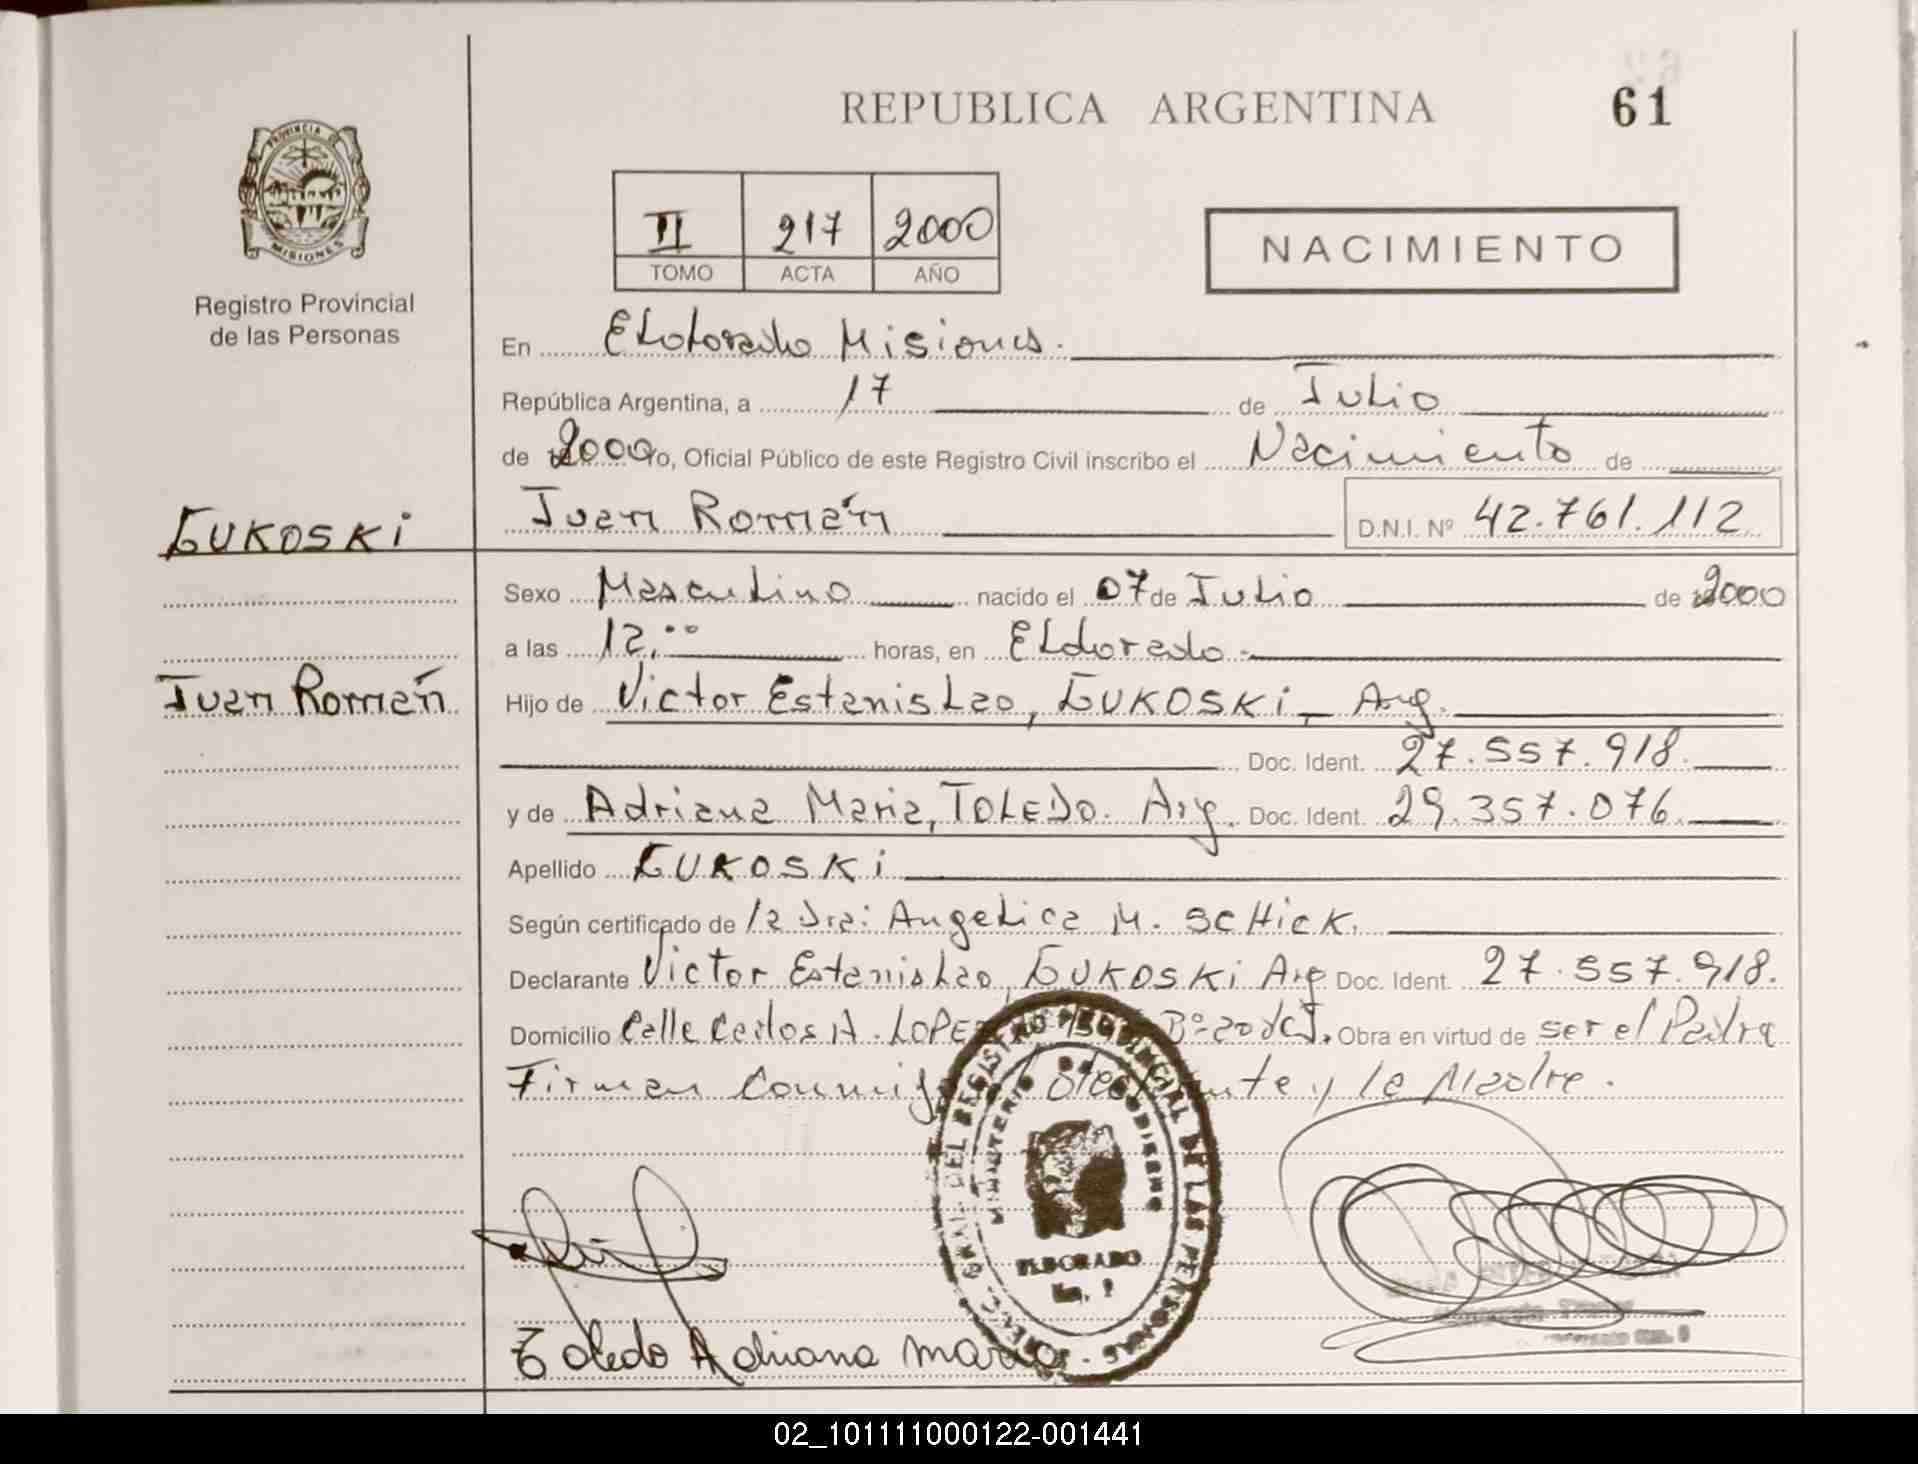 REPUBLICA ARGENTINA
61
PROVINCIA DE
MISIONES
Registro Provincial
de las Personas
II 217 2000
TOMO ACTA AÑO
NACIMIENTO
En Eldorado Misiones.
República Argentina, a 17 de Julio
de 2000 yo, Oficial Público de este Registro Civil inscribo el Nacimiento de
Juan Román D.N.I. Nº 42.761.112
LUKOSKI
Sexo Masculino nacido el 07 de Julio de 2000
a las 12,00 horas, en Eldorado.
Juan Román
Hijo de Victor Estanislao, LUKOSKI, Arg.
Doc. Ident. 27.557.918.
y de Adriana Maria, TOLEDO. Arg. Doc. Ident. 29.357.076
Apellido LUKOSKI
Según certificado de la Dra: Angelica M. SCHICK.
Declarante Victor Estanislao, LUKOSKI Arg Doc. Ident. 27.557.918.
Domicilio Calle Carlos A. LOPEZ Obra en virtud de ser el Padre
Firman y la Madre.
DEL REGISTRO PROVINCIAL DE LAS PERSONAS
MINISTERIO DE GOBIERNO
ELDORADO
Toledo Adriana maria.
02_101111000122-001441